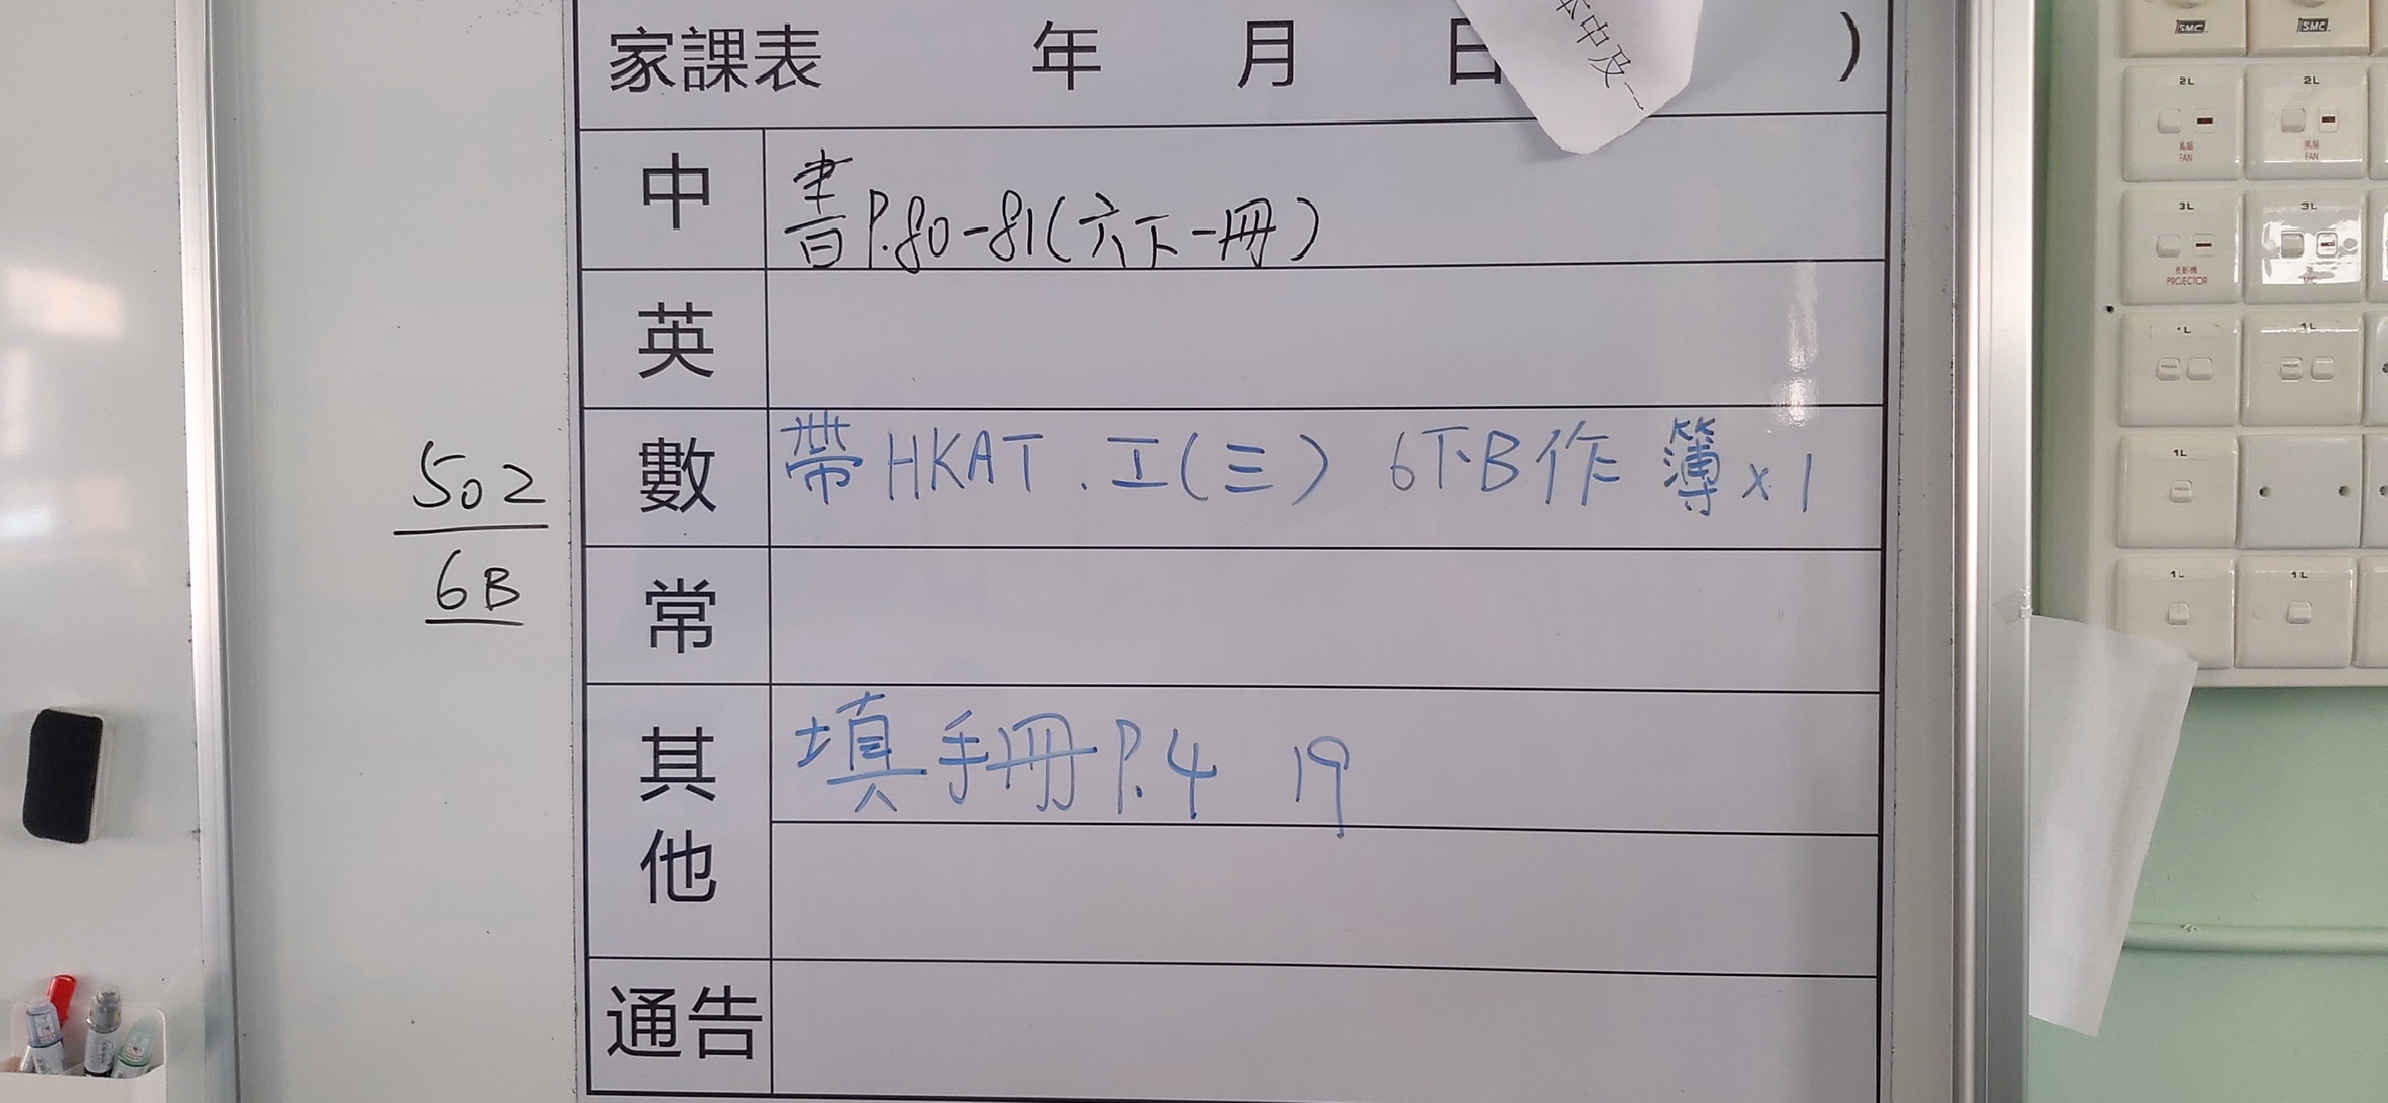 家課表 年 月 日 )
本中及一
中 書P.80-81(六下一冊)
英
數 帶HKAT.工(三) 6下B作 簿x1
常
其他 填手冊P.4 19
通告
502
6B
SMC
SMC
2L
2L
風扇
FAN
風扇
FAN
3L
3L
投影機
PROJECTOR
MIC
1L
1L
1L
1L
1L